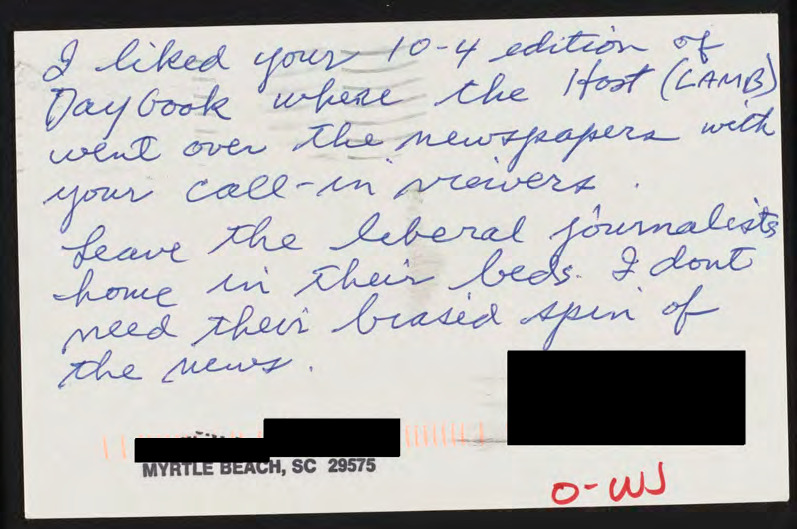 I liked your 10-4 edition of
Daybook where the Host (LAMB)
went over the newspapers with
your call-in viewers.
Leave the liberal journalists
home in their beds. I dont
need their biased spin of
the news.
MYRTLE BEACH, SC 29575
O-WJ